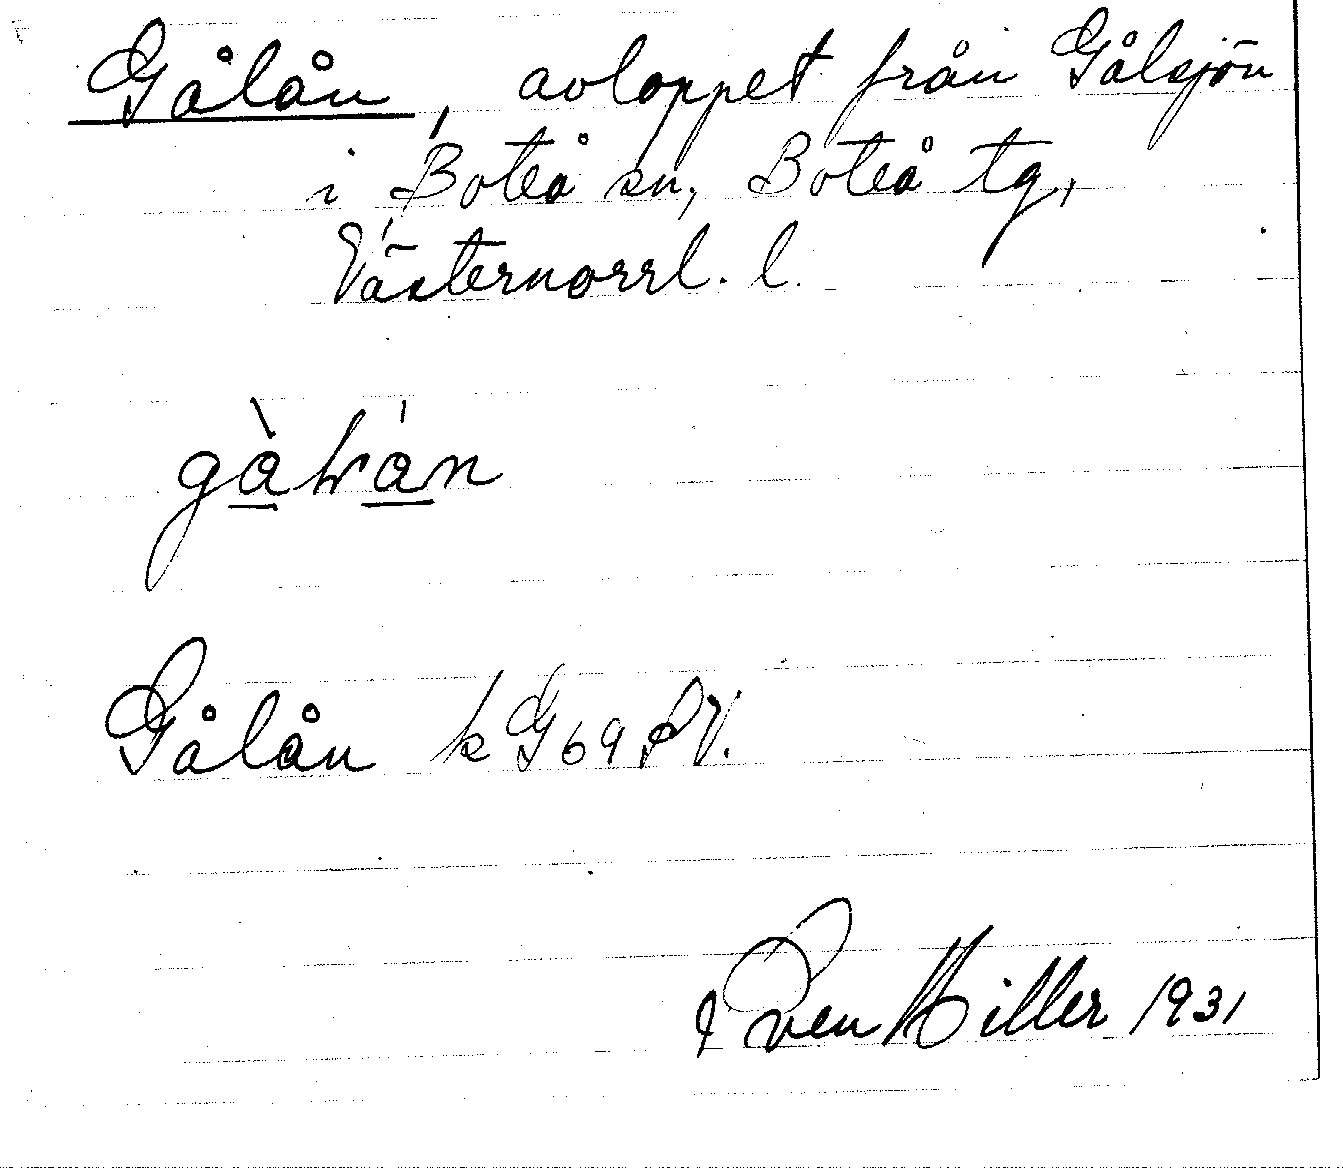 Gålån, avloppet från Gålsjön
i Boteå sn, Boteå tg,
Västernorrl. l.
Gålån k G69 SV.
Sven Hiller 1931